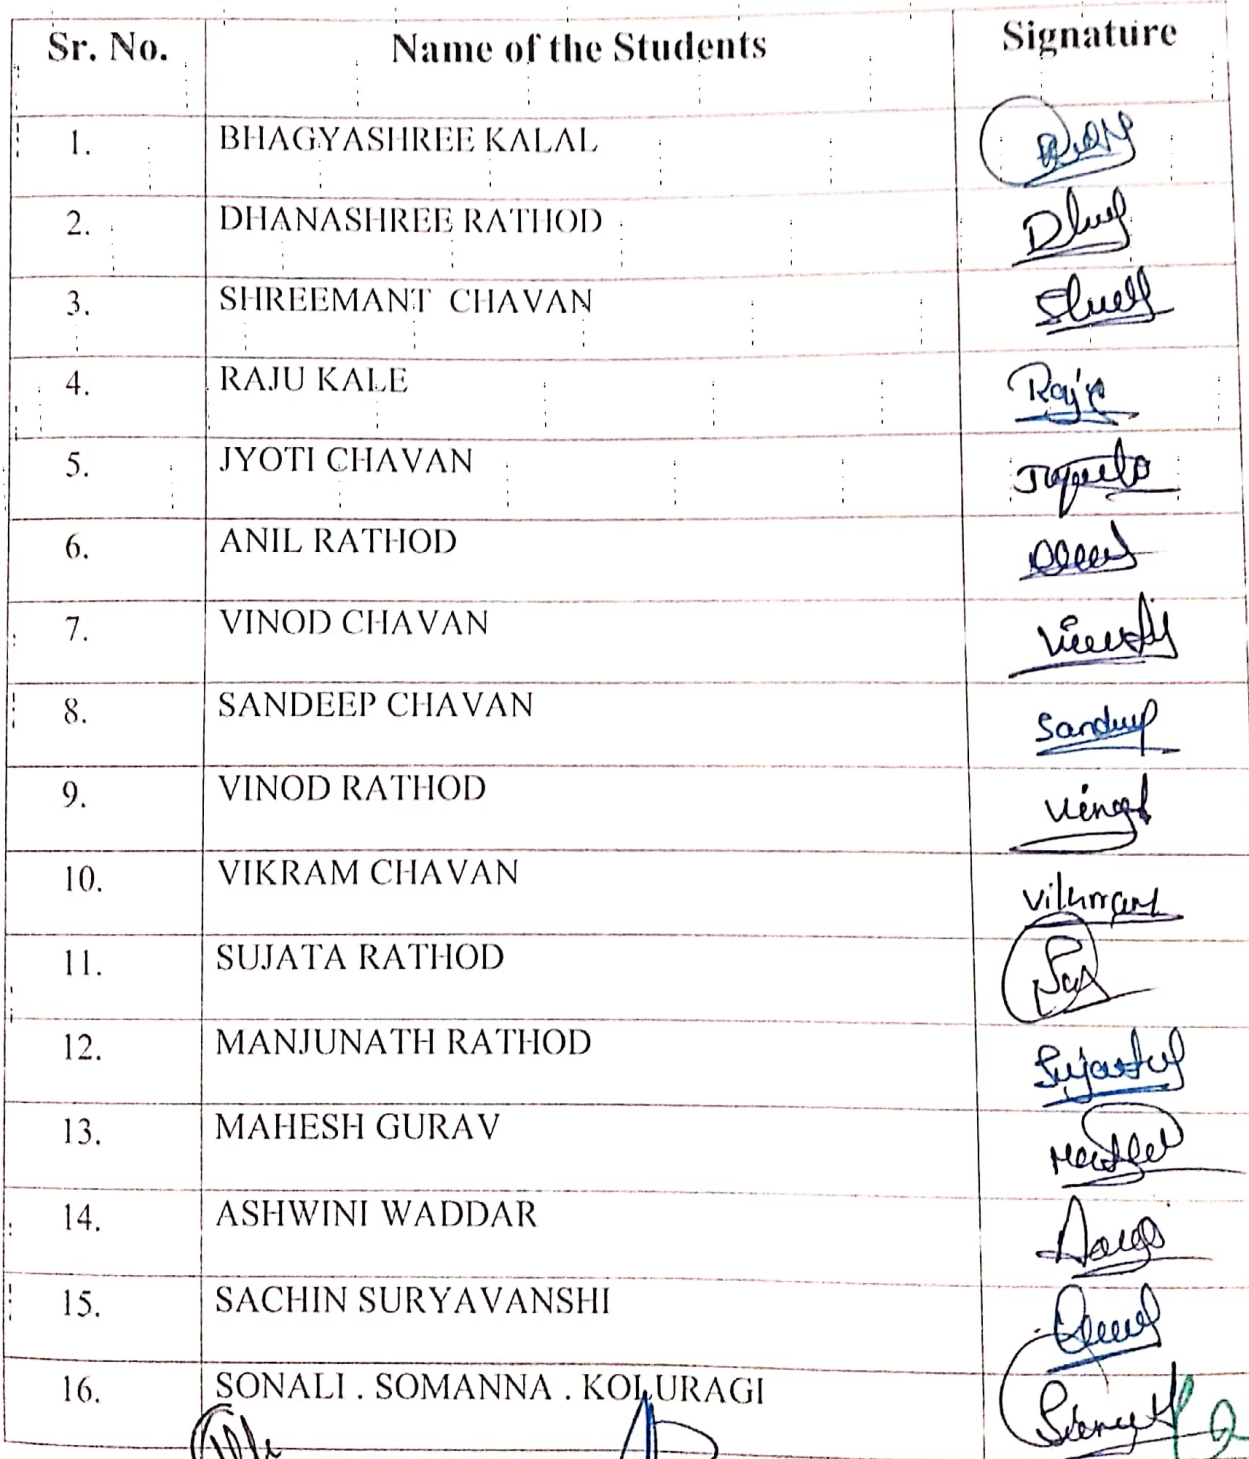 Sr. No. Name of the Students Signature
1. BHAGYASHREE KALAL
2. DHANASHREE RATHOD
3. SHREEMANT CHAVAN
4. RAJU KALE Raju
5. JYOTI CHAVAN
6. ANIL RATHOD
7. VINOD CHAVAN
8. SANDEEP CHAVAN Sandeep
9. VINOD RATHOD
10. VIKRAM CHAVAN Vikram
11. SUJATA RATHOD
12. MANJUNATH RATHOD
13. MAHESH GURAV
14. ASHWINI WADDAR
15. SACHIN SURYAVANSHI
16. SONALI . SOMANNA . KOLURAGI